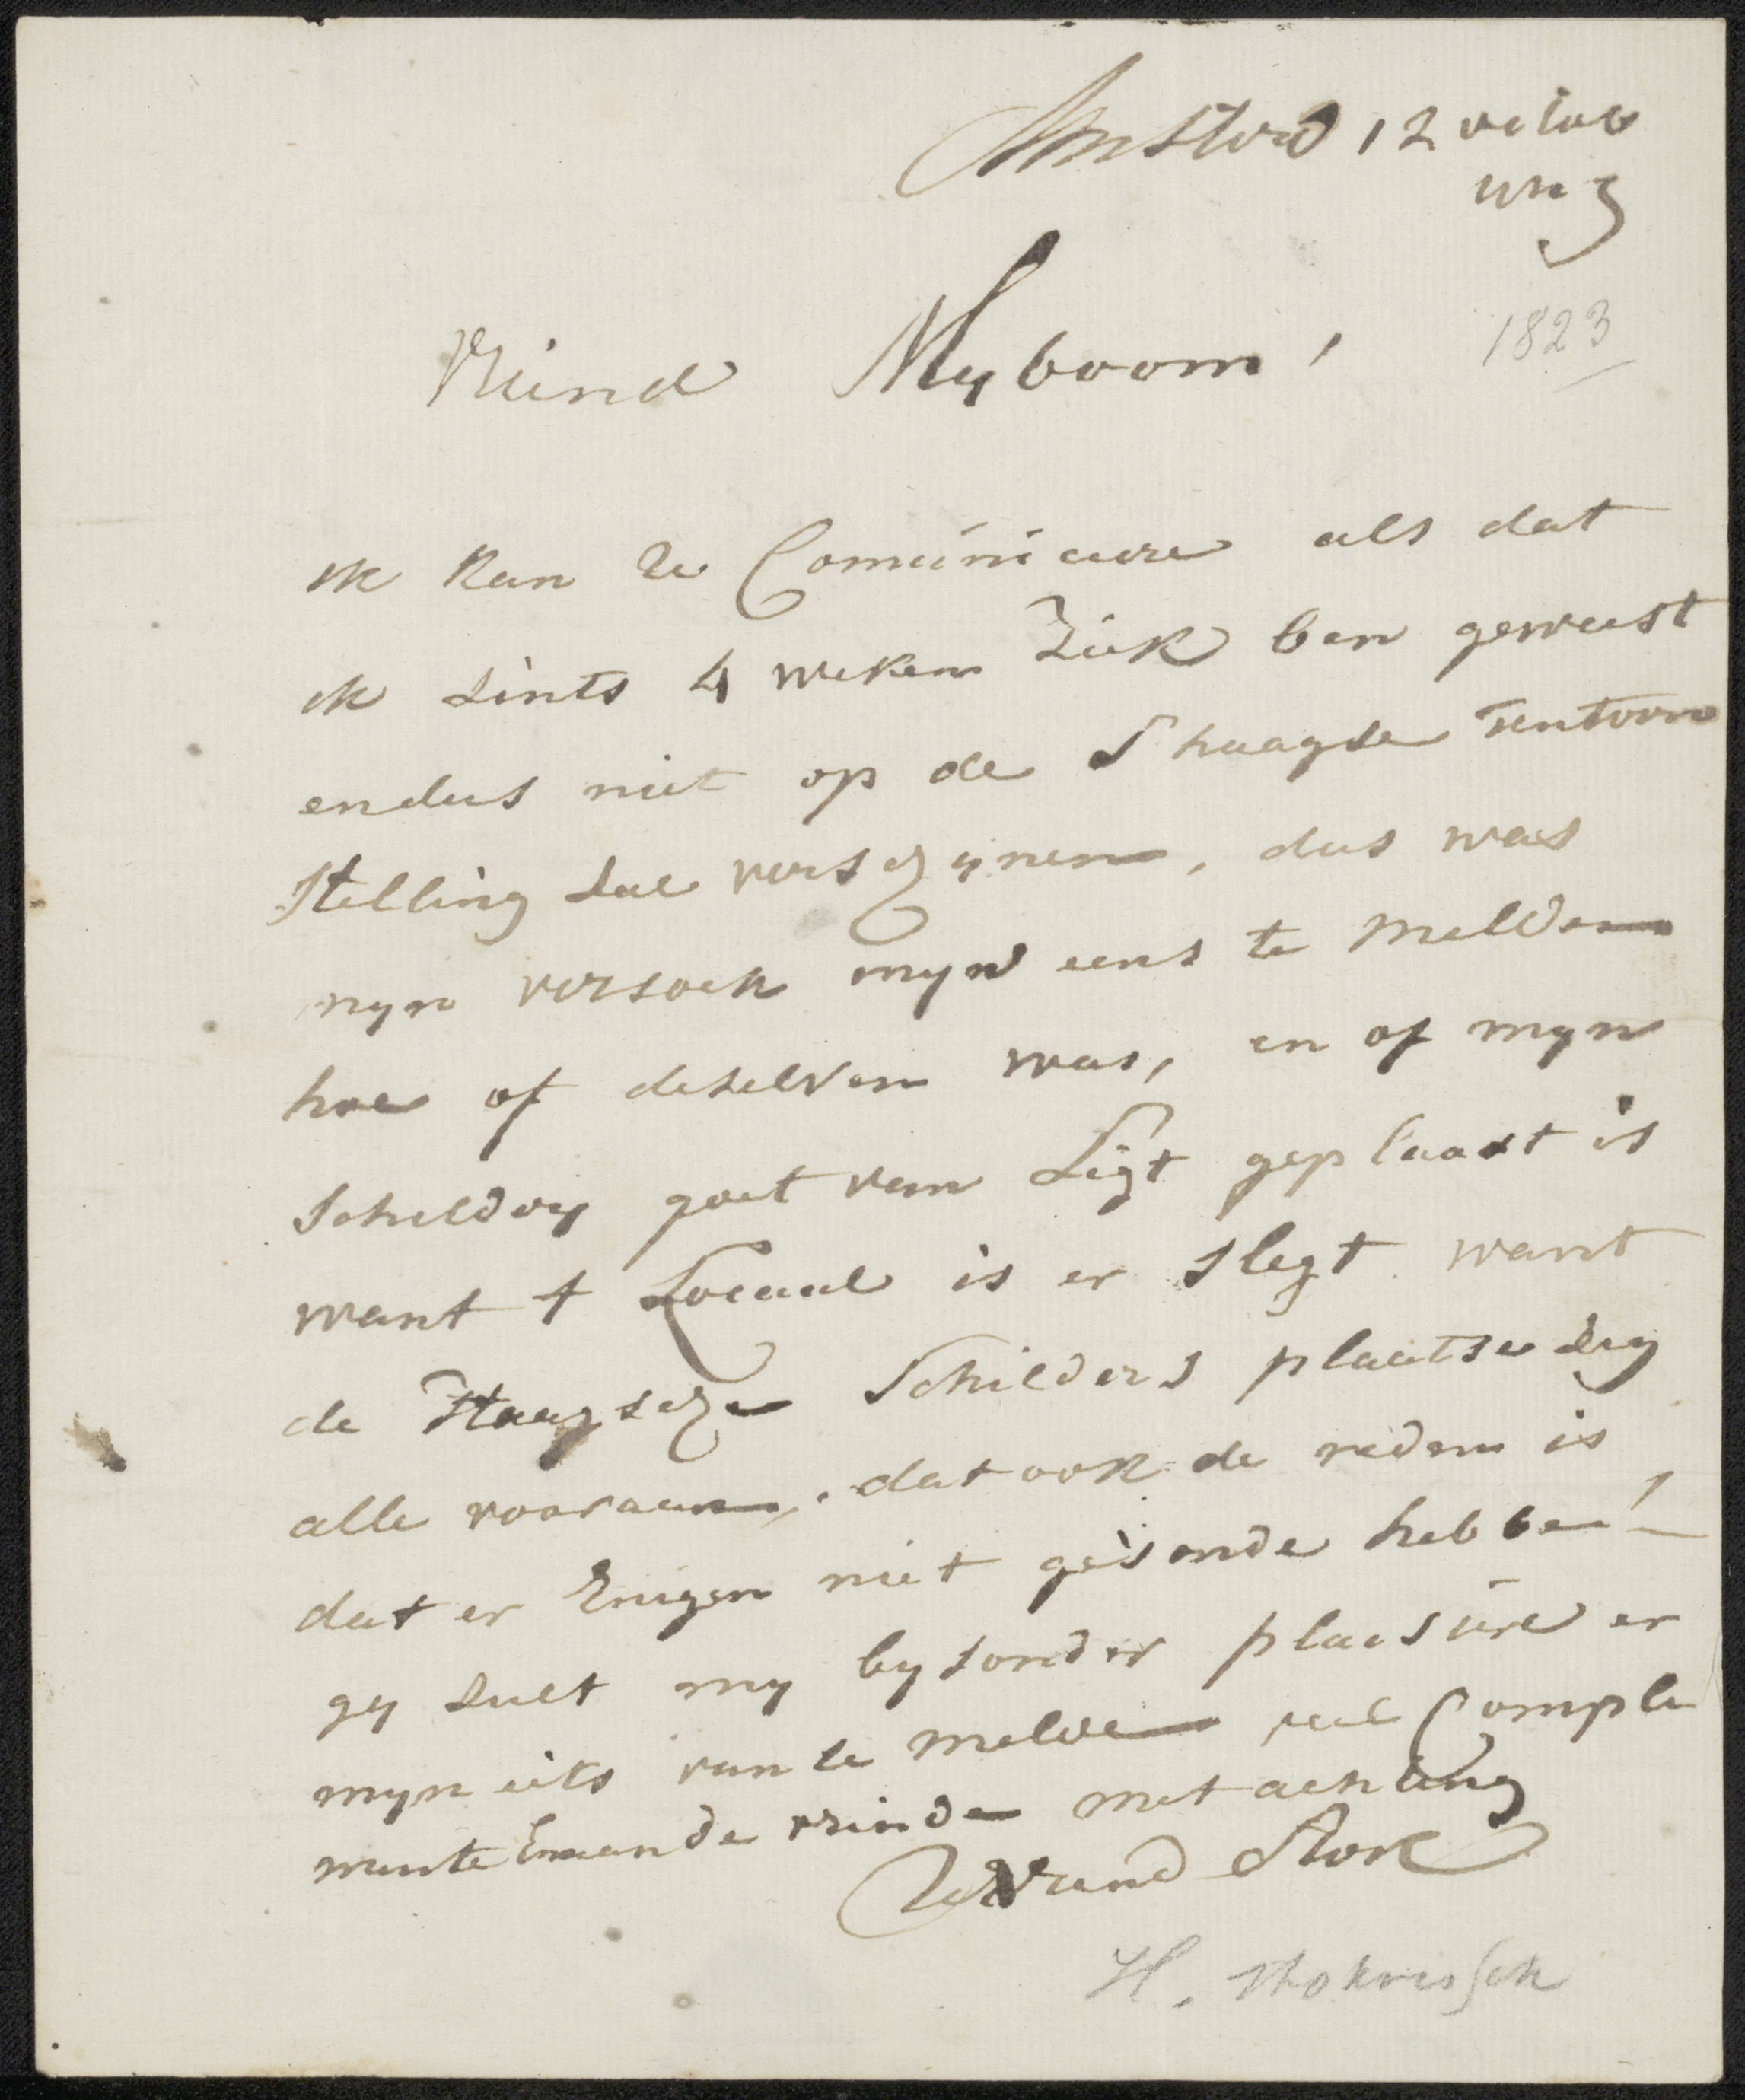 Amsterd 12 octob
1823
Vriend Myboom,
ik kan Ue Comuniceere als dat
ik sints 4 weken ziek ben geweest
en dus niet op de S haagse Tentoon
Stelling sal verschynen, dus was
myn versoek myn eens te melden
hoe of deselven was, en of myn
Schildry goet van Ligt geplaast is
want t Locaal is er slegt want
de Haagsche Schilders plaatse sig
alle vooraan, dat ook de reden is
dat er Enigen niet gesonde hebben
gy sult my bysonder plaisiere er
myn iets van te melden veel Comple
mente aan de vrinde met achting
Ue Vriend Stok
H. Stokvisch